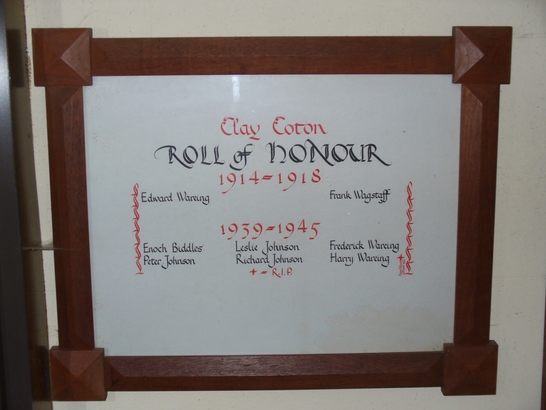 Clay Coton
ROLL of HONOUR
1914-1918
Edward Wareing Frank Wagstaff
1939-1945
Enoch Biddles Leslie Johnson Frederick Wareing
Peter Johnson Richard Johnson Harry Wareing +
+ - R.I.P.